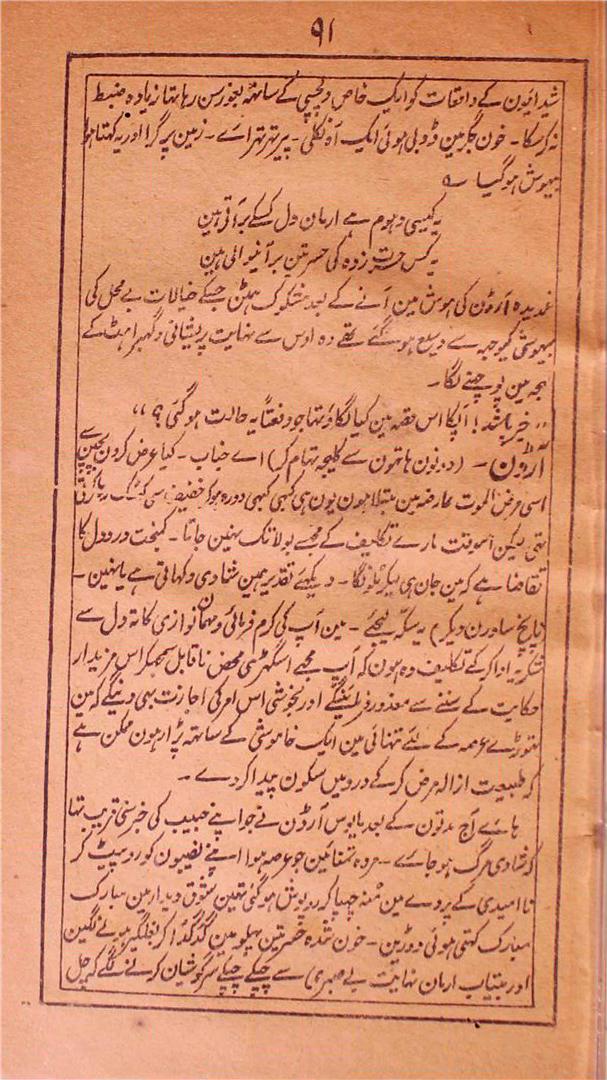 ۹۱
شیدائیون کے واقعات کو ایک خاص دلچسپی کے ساتھہ بغور سن رہا تہا زیادہ ضبط
نہ کر سکا۔ خون جگر مین ڈوبی ہوئی ایک آہ نکلی۔ پیر تہر تہراے۔ زمین پر گرا اور یہ کہتا ہوا
بیہوش ہو گیا ؎
یہ کیسی دہوم ہے ارمان دل کسکے بر آتی ہین
یہ کس حسرت زدہ کی حسرتین بر آنیوالی ہین
غمدیدہ آرڈن کی ہوش مین آنے کے بعد مشکوک ہٹن جسکے خیالات بے محل کی
بیہوشی کیوجہ سے وسیع ہو گئے تھے وہ اوس سے نہایت پریشانی و گھبراہٹ کے
لہجہ مین پوچھنے لگا۔
،، خیر باشد! آپکا اس قصہ مین کیا لگاؤ تہا جو دفعتاً یہ حالت ہو گئی؟ ،،
آرڈن۔ (دونون ہاتہون سے کلیجہ تہام کر) اے جناب۔ کیا عرض کرون بچپن سے
اسی مرض الموت عارضہ مین مبتلا ہون یون ہی کبھی کبھی دورہ ہو کر خفیف سی کسک رہا کرتی
تہی لیکن اسوقت مارے تکالیف کے مجھے بولا تک نہین جاتا۔ کمبخت درد دل کا
تقاضا ہے کہ مین جان ہی لیکر ٹلونگا۔ دیکھئے تقدیر ہمین شادی دکہاتی ہے یا نہین۔
(پانچ ساورن دیکر) یہ سکہ لیجئے۔ مین آپ کی کرم فرمائی و مہمان نوازی کا تہ دل سے
شکریہ ادا کر کے تکالیف دہ ہون کہ آپ مجھے اسگھڑی محض ناقابل سمجھکر اس مزیدار
حکایت کے سننے سے معذور فرمائینگے اور بخوشی اس امر کی اجازت بھی دینگے کہ مین
تہوڑے عرصہ کے لئے تنہائی مین ایک خاموشی کے ساتھہ پڑا رہون ممکن ہے
کہ طبیعت ازالہ مرض کر کے درد مین سکون پیدا کر دے۔
ہاے آج مدتون کے بعد مایوس آرڈن نے جو اپنے حبیب کی خبر سنی قریب تہا
کہ شادی مرگ ہو جاے۔ مردہ تمنائین جو عرصہ ہوا اپنے نصیبون کو رو پیٹ کر
نا امیدی کے پردے مین منہ چھپا کر روپوش ہو گئی تہین شوق دیدار مین مبارک
مبارک کہتی ہوئی دوڑین۔ خون شدہ حسرتین پہلو مین گدگدا کر بغلگیر ہونے لگین
اور بیتاب ارمان نہایت بے صبری سے چپکے چپکے سرگوشیان کرنے لگے کہ چل